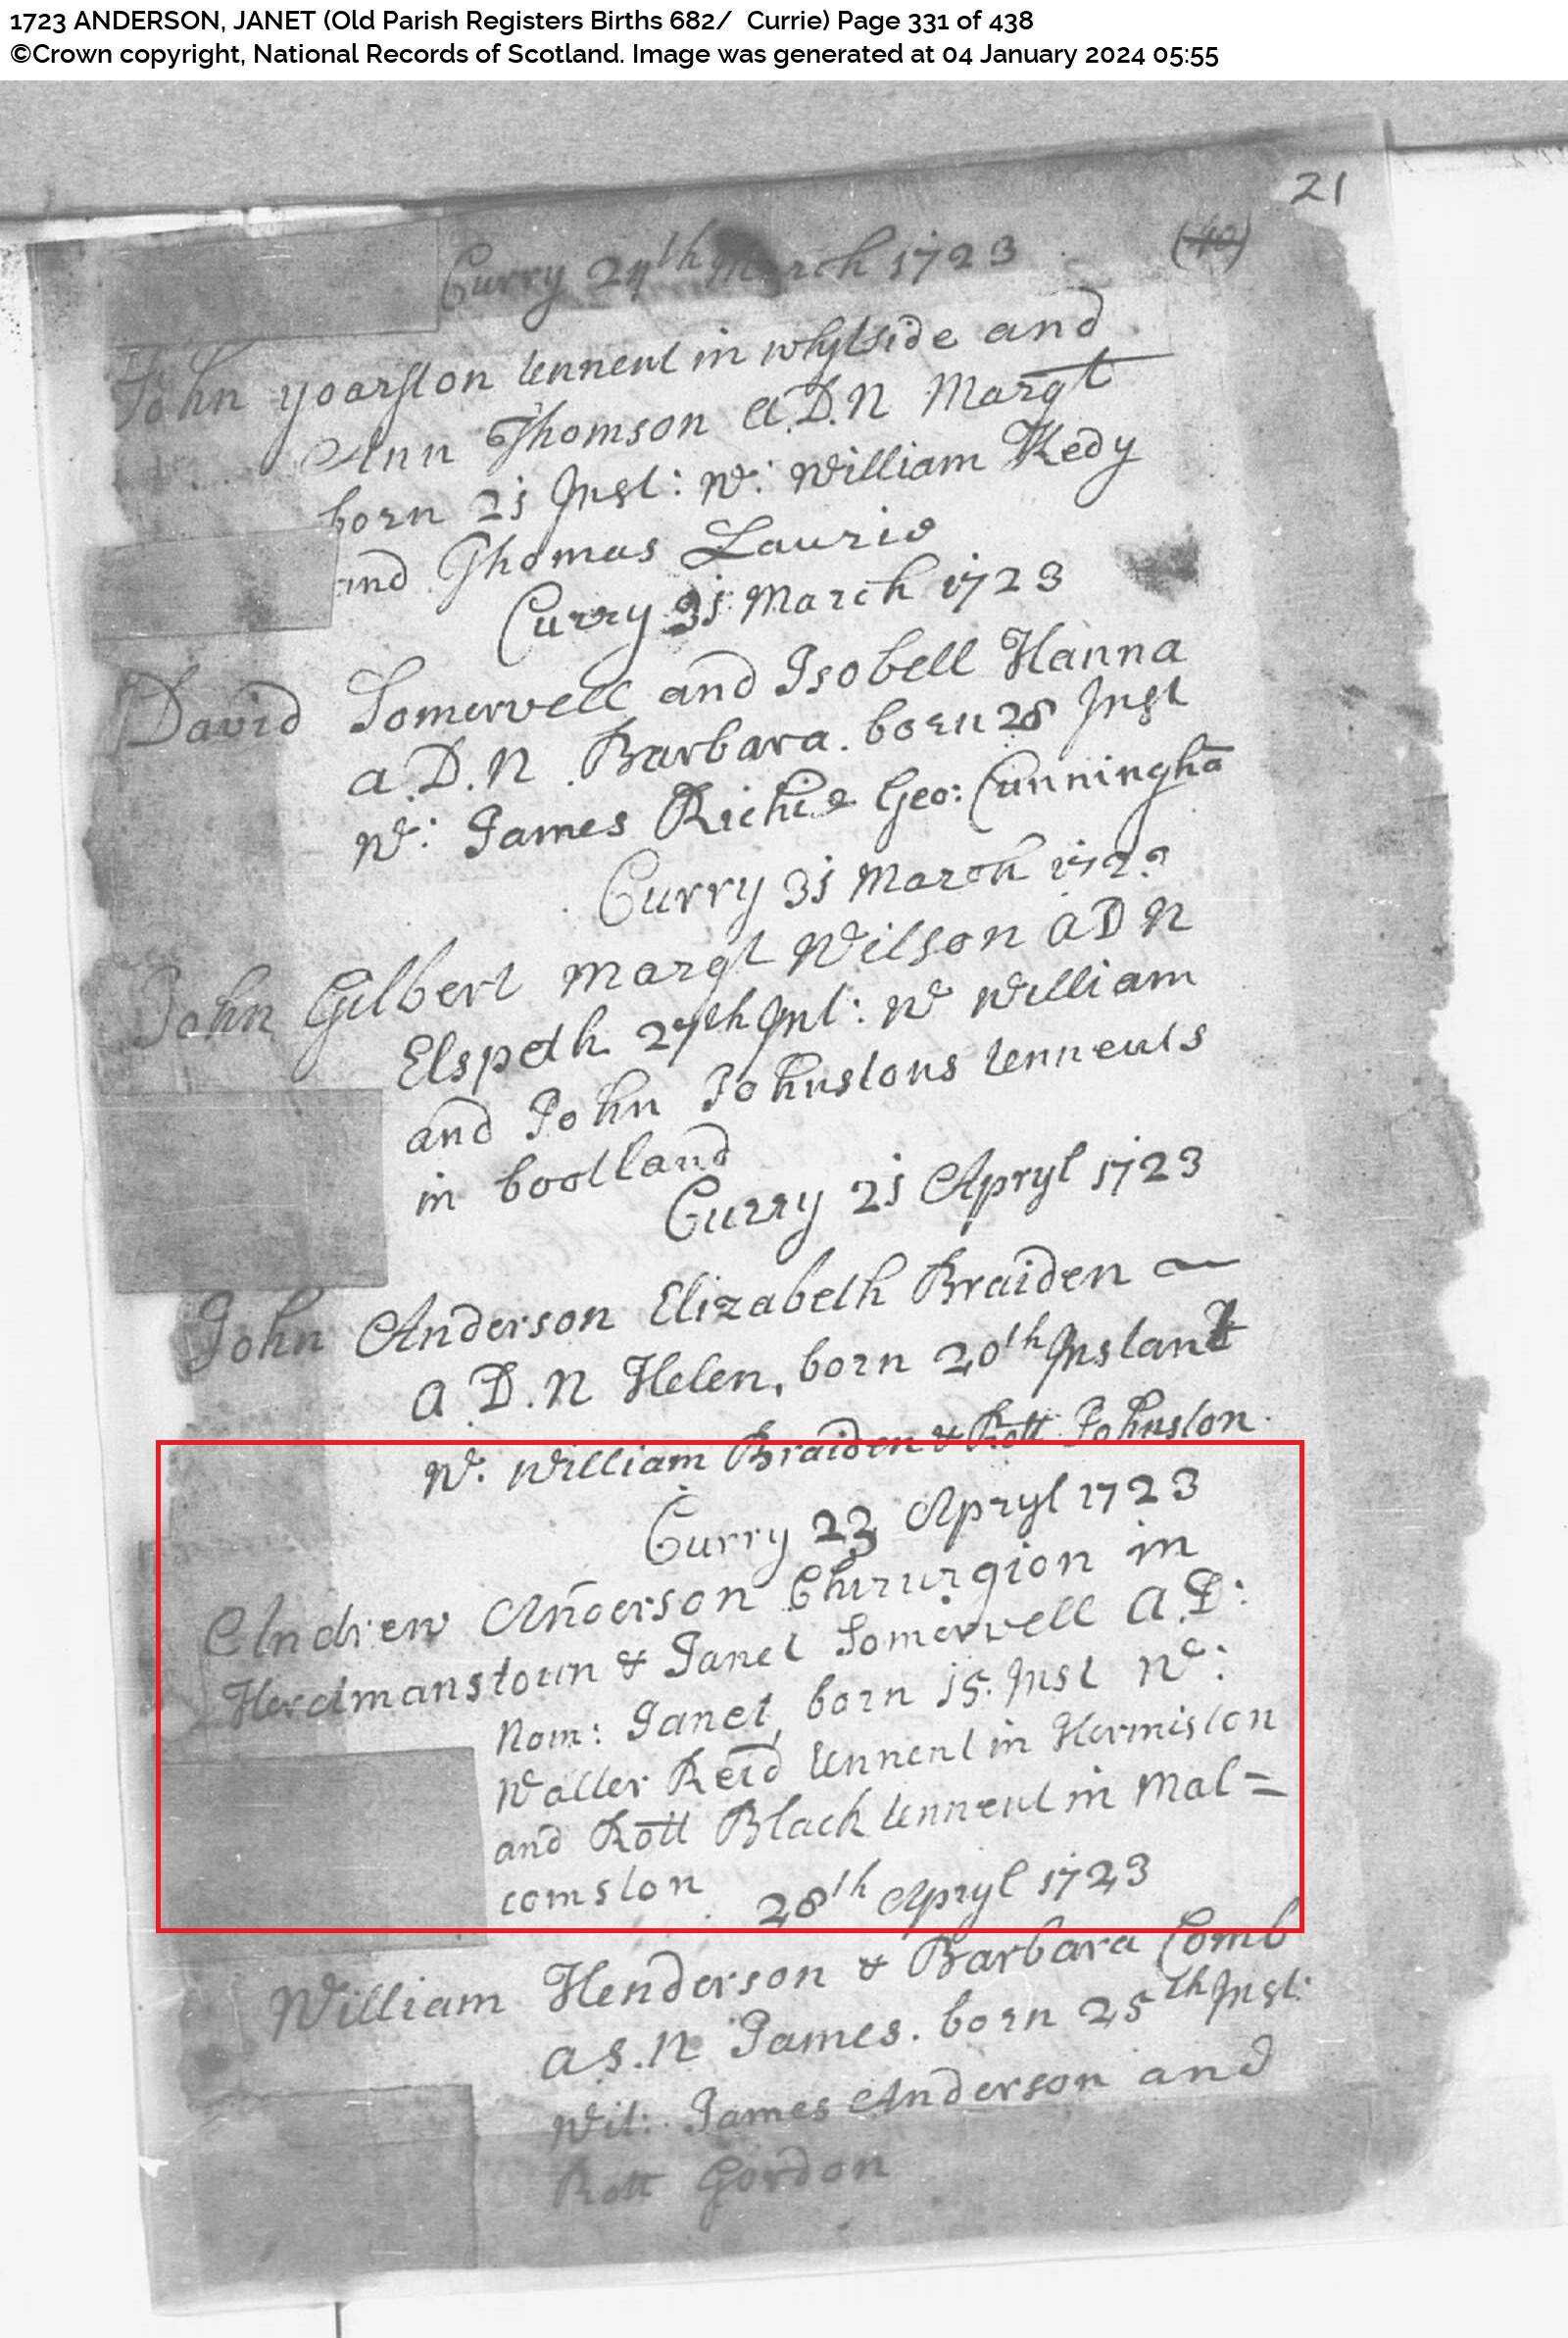 1723 ANDERSON, JANET (Old Parish Registers Births 682/ Currie) Page 331 of 438
©Crown copyright, National Records of Scotland. Image was generated at 04 January 2024 05:55
21
(40)
Curry 24th March 1723
John yoarston tennent in whytside and
Ann Thomson a.D.N Margt
born 21 Inst: We: William Kedy
and Thomas Laurie
Curry 31 March 1723
David Somervell and Isobell Hanna
a.D.N. Barbara. born 28 Inst
We: James Richie Geo: Cunningha
Curry 31 March 1723
John Gilbert Margt Wilson aDN
Elspeth 27th Int: We William
and John Johnstons tennents
in bootland
Curry 21 Apryl 1723
John Anderson Elizabeth Braiden ~
a.D.N Helen, born 20th Instant
We: William Braiden & Rott Johnston.
Curry 23 Apryl 1723
Andrew Anderson Chirurgion in
Herdmanstoun & Janet Somervell a.D:
Nom: Janet, born 15. Inst We:
Walter Reid tennent in Hermiston
and Rott Black tennent in Mal=
comston
28th Apryl 1723
William Henderson & Barbara Comb
a S.N James. born 25th Inst:
Wit: James Anderson and
Rott Gordon